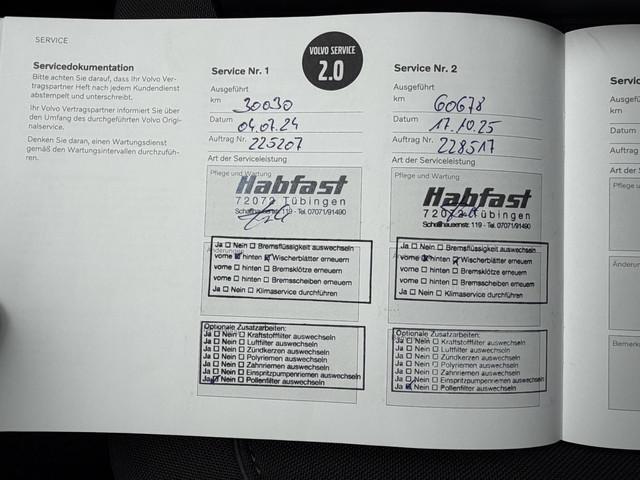 SERVICE
Servicedokumentation
Bitte achten Sie darauf, dass Ihr Volvo Ver-
tragspartner Heft nach jedem Kundendienst
abstempelt und unterschreibt.
Ihr Volvo Vertragspartner informiert Sie über
den Umfang des durchgeführten Volvo Origi-
nalservice.
Denken Sie daran, einen Wartungsdienst
gemäß den Wartungsintervallen durchzufüh-
ren.
VOLVO SERVICE
2.0
Service Nr. 1
Ausgeführt
km 30030
Datum 04.07.24
Auftrag Nr. 225207
Art der Serviceleistung
Pflege und Wartung
Habfast
72072 Tübingen
Schaffhausenstr. 119 - Tel. 07071/91490
Ja Nein Bremsflüssigkeit auswechseln
vorne hinten Wischerblätter erneuern
vorne hinten Bremsklötze erneuern
vorne hinten Bremsscheiben erneuern
Ja Nein Klimaservice durchführen
Optionale Zusatzarbeiten:
Ja Nein Kraftstofffilter auswechseln
Ja Nein Luftfilter auswechseln
Ja Nein Zündkerzen auswechseln
Ja Nein Polyriemen auswechseln
Ja Nein Zahnriemen auswechseln
Ja Nein Einspritzpumpenriemen auswechseln
Ja Nein Pollenfilter auswechseln
Service Nr. 2
Ausgeführt
km 60678
Datum 17.10.25
Auftrag Nr. 228517
Art der Serviceleistung
Pflege und Wartung
Habfast
72072 Tübingen
Schaffhausenstr. 119 - Tel. 07071/91490
Ja Nein Bremsflüssigkeit auswechseln
vorne hinten Wischerblätter erneuern
vorne hinten Bremsklötze erneuern
vorne hinten Bremsscheiben erneuern
Ja Nein Klimaservice durchführen
Optionale Zusatzarbeiten:
Ja Nein Kraftstofffilter auswechseln
Ja Nein Luftfilter auswechseln
Ja Nein Zündkerzen auswechseln
Ja Nein Polyriemen auswechseln
Ja Nein Zahnriemen auswechseln
Ja Nein Einspritzpumpenriemen auswechseln
Ja Nein Pollenfilter auswechseln
Servic
Ausgef
km
Datum
Auftrag
Art der S
Pflege u
Änderun
Bemerk